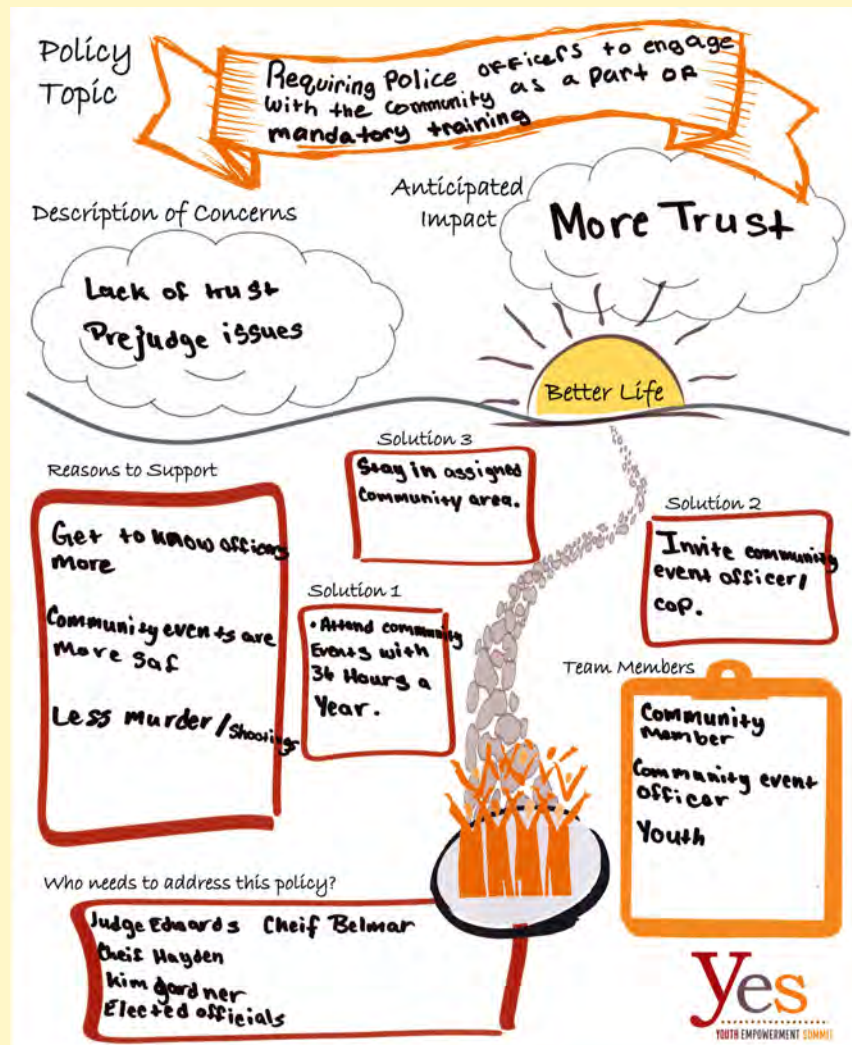 Policy
Topic
Requiring Police officers to engage
with the community as a part of
mandatory training
Description of Concerns
Lack of trust
Prejudge issues
Anticipated
Impact
More Trust
Better Life
Reasons to Support
Get to know officers
more
Community events are
more saf
Less murder/shootings
Solution 3
Stay in assigned
Community area.
Solution 1
• Attend community
Events with
36 Hours a
Year.
Solution 2
Invite community
event officer/
cop.
Team Members
Community
member
Community event
officer
Youth
Who needs to address this policy?
Judge Edwards Cheif Belmar
Cheif Hayden
Kim gardner
Elected officials
yes
YOUTH EMPOWERMENT SUMMIT